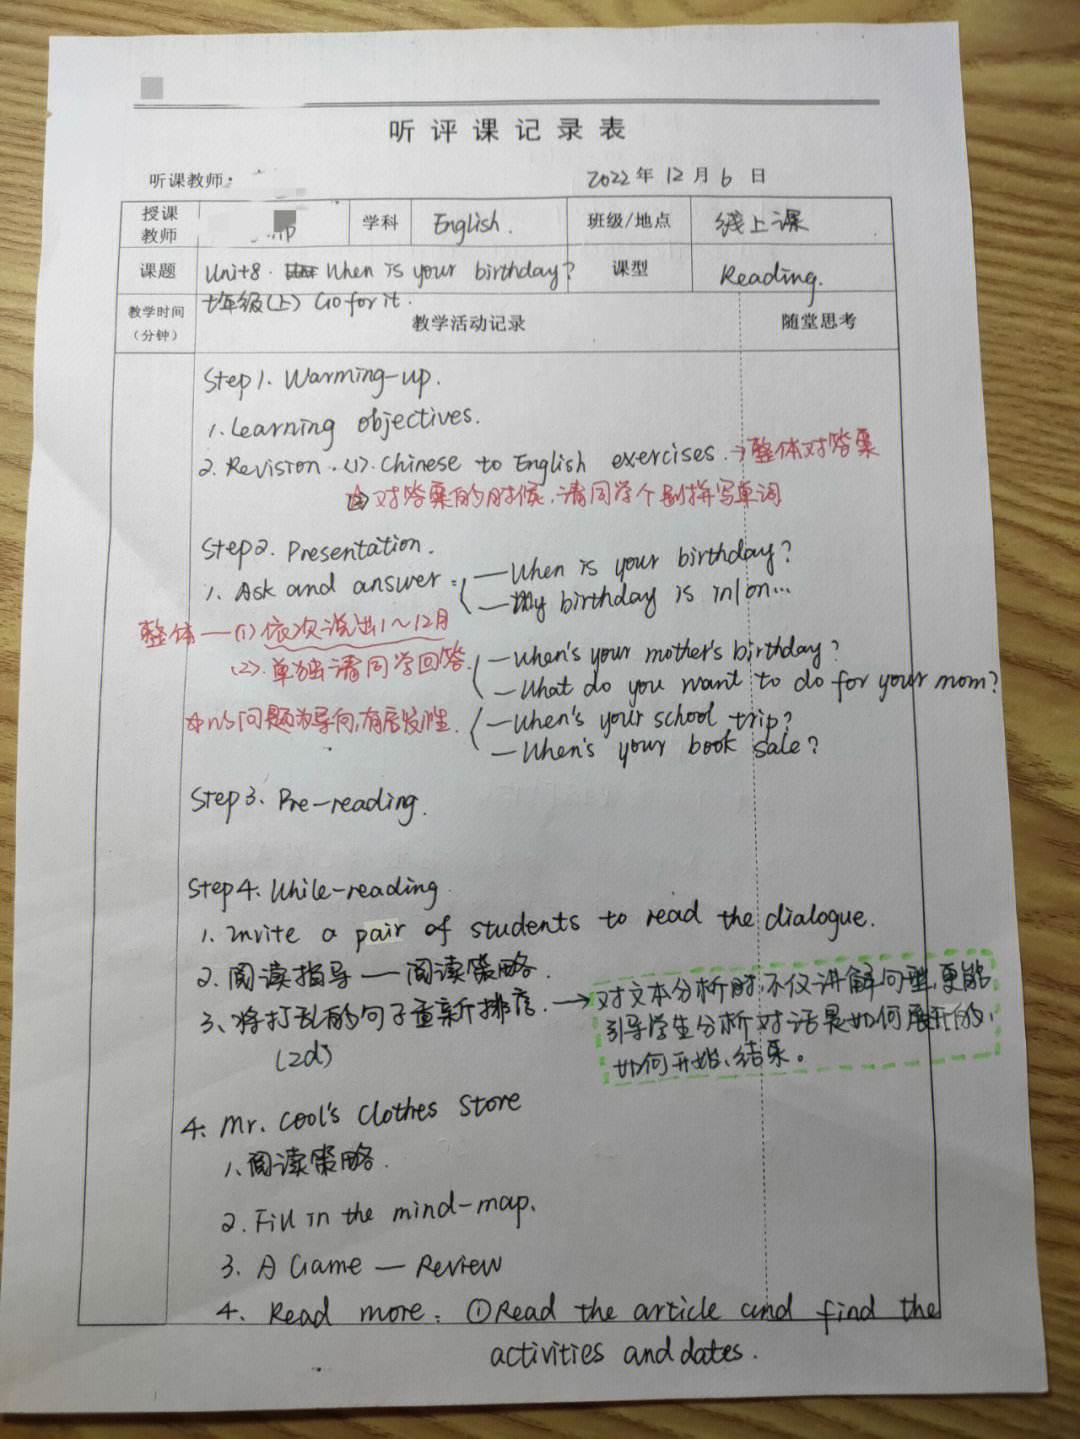 听评课记录表
听课教师: 2022年12月6日
授课教师 学科 English. 班级/地点 线上课
课题 Unit 8. When is your birthday? 课型 Reading.
七年级(上) Go for it.
教学时间(分钟) 教学活动记录 随堂思考
Step 1. Warming-up.
1. Learning objectives.
2. Revision. (1). Chinese to English exercises. → 整体对答案
对答案的时候,请同学个别拼写单词
Step 2. Presentation.
1. Ask and answer: — When is your birthday?
— My birthday is in/on...
整体 — (1) 依次说出1~12月
(2). 单独请同学回答. — When's your mother's birthday?
— What do you want to do for your mom?
以问题为导向,有启发性. — When's your school trip?
— When's your book sale?
Step 3. Pre-reading.
Step 4. While-reading
1. Invite a pair of students to read the dialogue.
2. 阅读指导 — 阅读策略.
3、将打乱的句子重新排序. → 对文本分析时,不仅讲解句型,更能
(2d) 引导学生分析对话是如何展开的,
如何开始、结束。
4. Mr. Cool's Clothes Store
1、阅读策略.
2. Fill in the mind-map.
3. A Game — Review
4. Read more: ① Read the article and find the
activities and dates.